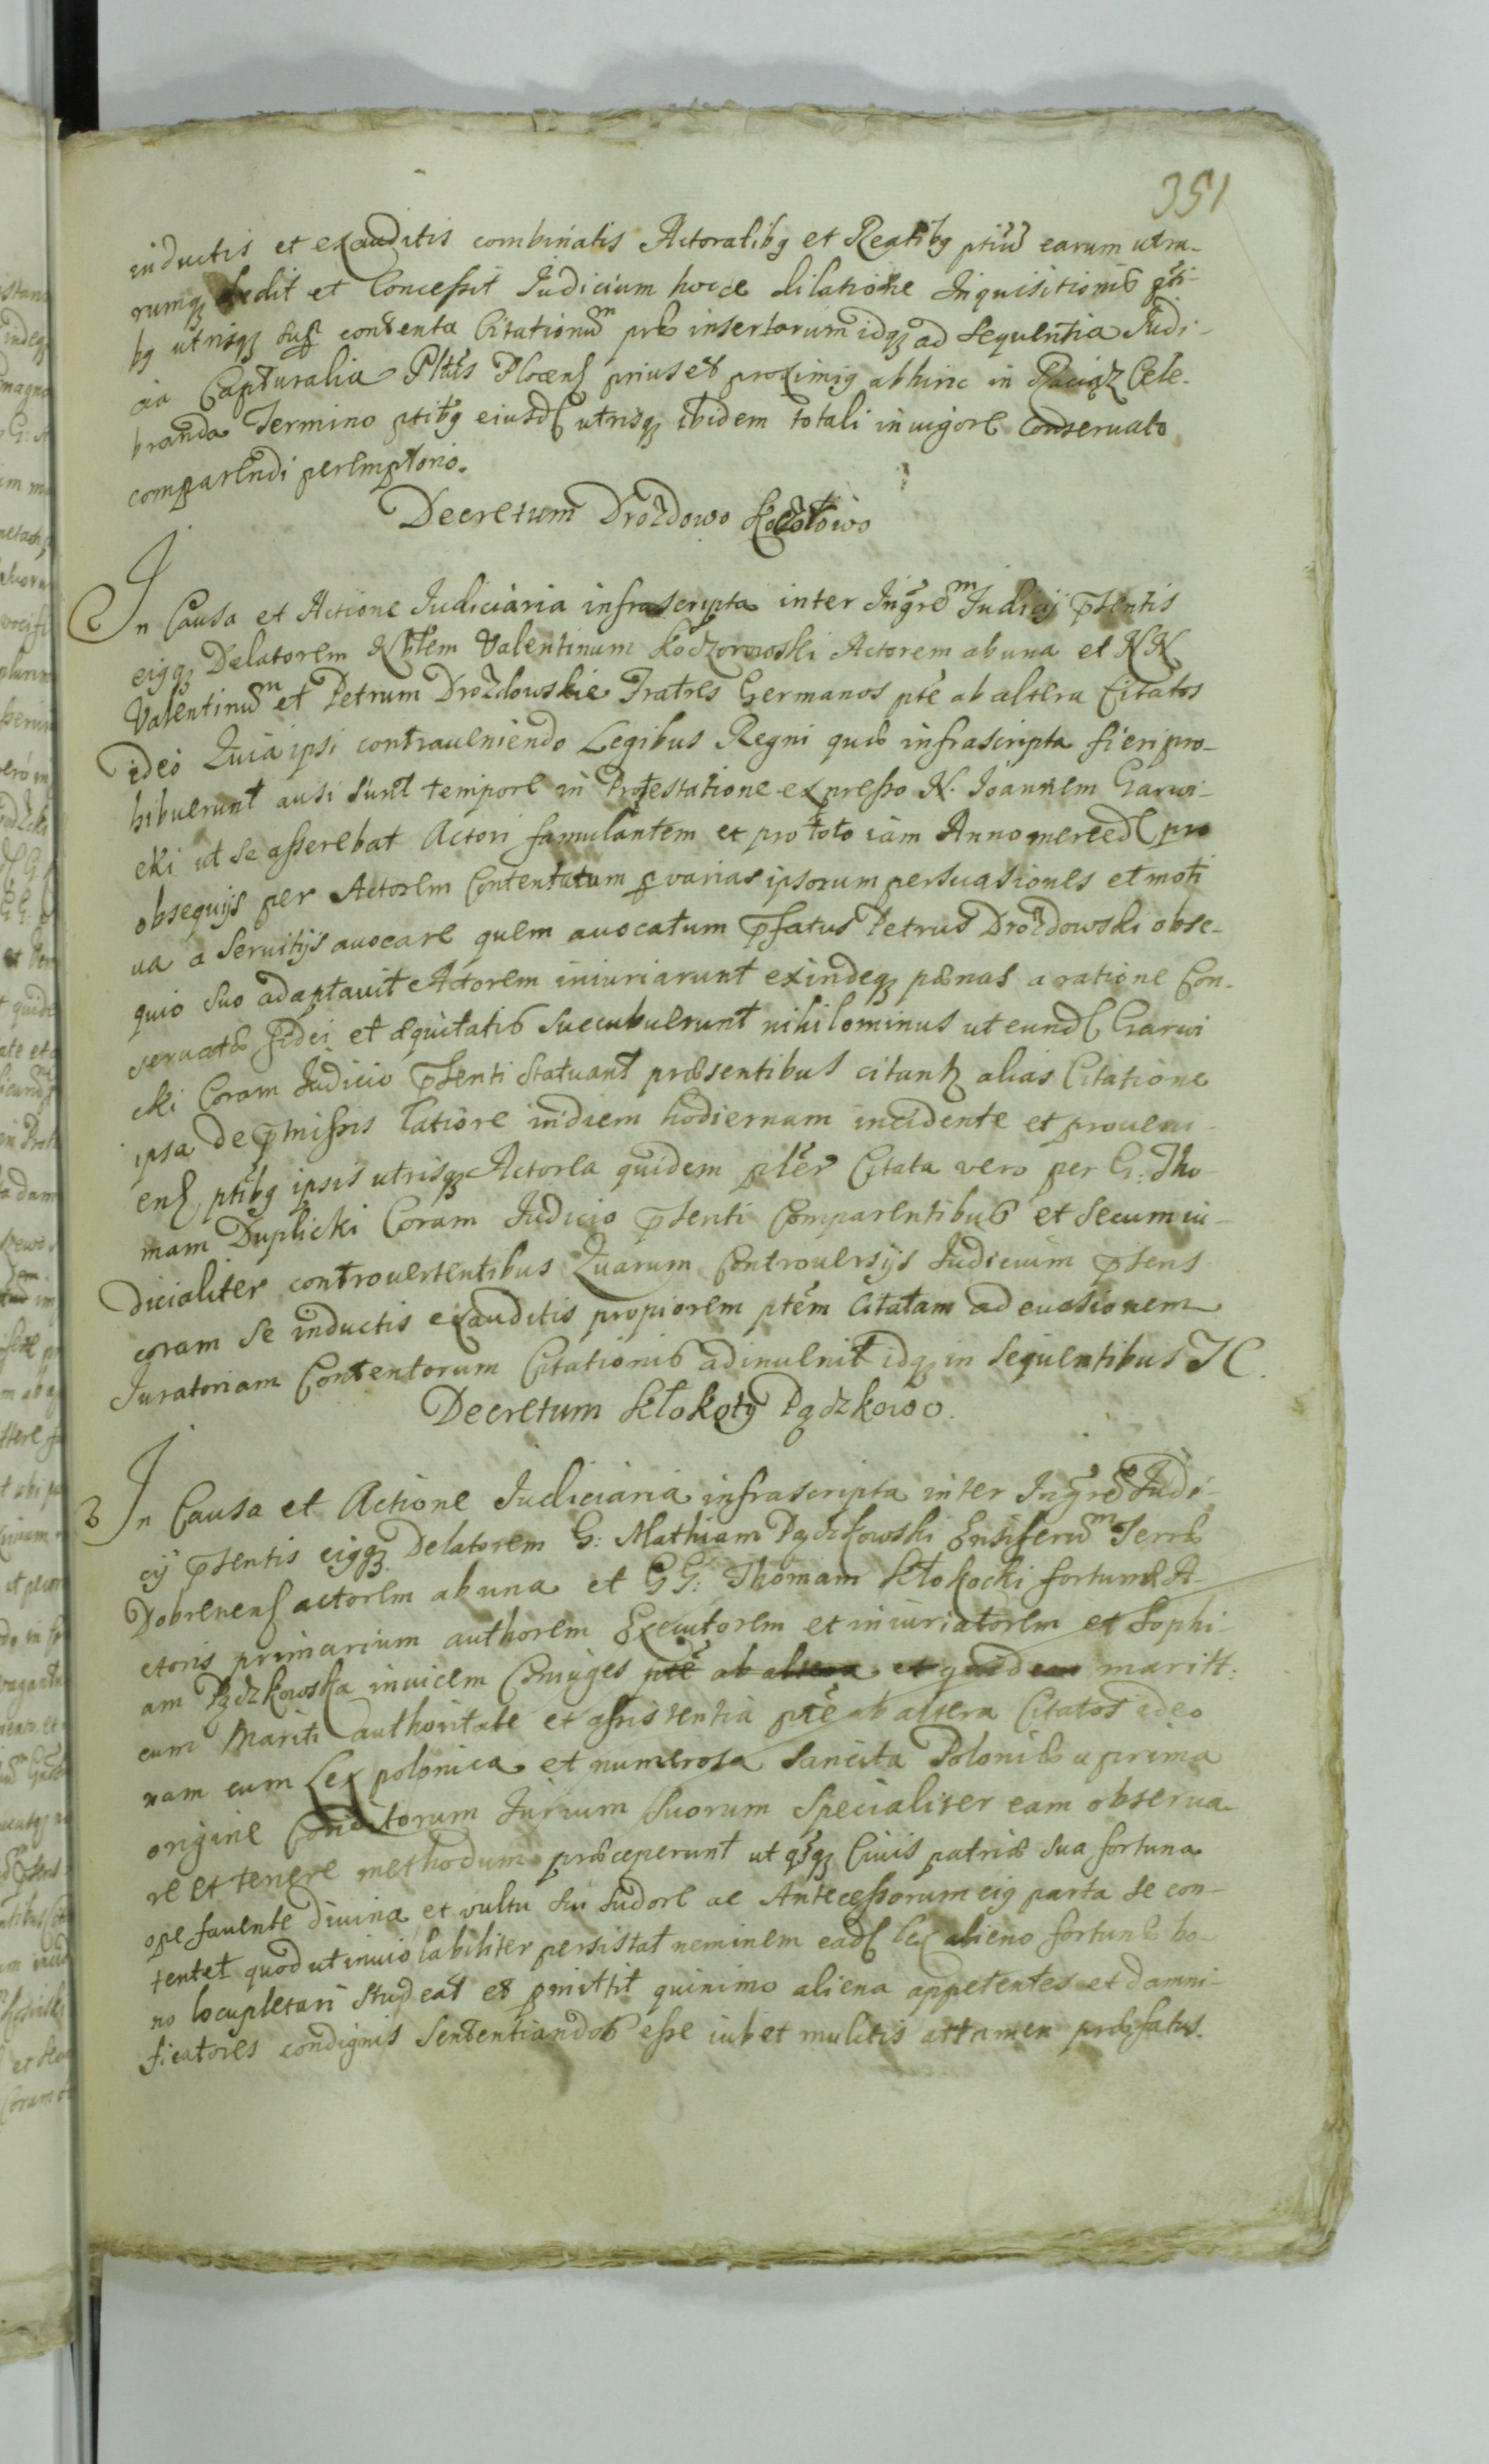 351
inductis et exauditis combinatis Actoratibq et Reatibq ptiũ earum utra-
rumq dedit et Concessit Judicium hocce dilatione Inquisitionis pti-
bq utrisq sup contenta Citationũm præ insertorum idq ad sequentia Judi-
cia Capturalia Pltũs Plocens prius et proximiq abhinc in Raciąz Cele-
branda Termino ptibq eiusd utrisq ibidem totali in vigore Conservato
comparendi peremptorio.
Decretum Drozdowo Koczołowo
In Causa et Actione Judiciaria infrascripta inter Ingrem Judicij pñtentis
eiqq Delatorem Nblem Valentinum Koczorowski Actorem ab una et NN
Valentinũm et Petrum Drozdowskie Fratres Germanos pte ab altera Citatos
ideo Quia ipsi contraueniendo Legibus Regni quæ infrascripta fieri pro-
hibuerunt ausi sunt tempore in Protestatione expresso N. Joannem Garwi-
cki ut se asserebat Actori famulantem et pro toto iam Anno merced pro
obsequijs per Actorem Contentatum p varias ipsorum persuasiones et moti
ua a seruitijs auocare quem auocatum pfatus Petrus Drozdowski obse-
quio suo adaptauit Actorem iniuriarunt exindeq pænas a ratione Con-
seruatæ fidei et æquitatis succubuerunt nihilominus ut eund Garwi
cki Coram Judicio pñtenti statuant præsentibus citantz alias Citatione
ipsa de pmissis latiore in diem hodiernam incidente et proueni-
ens ptibq ipsis utrisq Actorea quidem pltẽr Citata vero per G: Tho-
mam Duplicki Coram Judicio pñtenti Comparentibus et secum iu-
dicialiter controuertentibus Quarum Controuersijs Judicium ptens
coram se inductis exauditis propiorem ptem Citatam ad euasionem
Juratoriam Contentorum Citationis adinuenit idq in sequentibus JC.
Decretum Kłokoty Pączkowo.
In Causa et Actione Judiciaria infrascripta inter Ingrẽ Judi-
cij ptentis eiqq Delatorem G: Mathiam Pączkowski Ensiferũm Terræ
Dobrenens actorem ab una et GG: Thomam Kłokocki fortunæ A-
ctoris primarium authorem Executorem et iniuriatorem et Sophi-
am Pączkowska inuicem Coniuges pte ab altera et quidem maritt:
cum Mariti authoritate et assistentia pte ab altera Citatos ideo
nam cum Lex polonica et numerosa Sancita Poloniæ a prima
origine Conditorum Jurium suorum specialiter eam obserua-
re et tenere methodum præceperunt ut qsq Ciuis patriæ sua fortuna
ope fauente diuina et vultu sui sudore ac Antecessorum eiq parta se con-
tentet quod ut inuiolabiliter persistat neminem ead lex alieno fortunæ bo-
no locupletari studeat et pmittit quinimo aliena appetentes et damni-
ficatores condignis Sententiandos esse iubet mulctis attamen præfatus